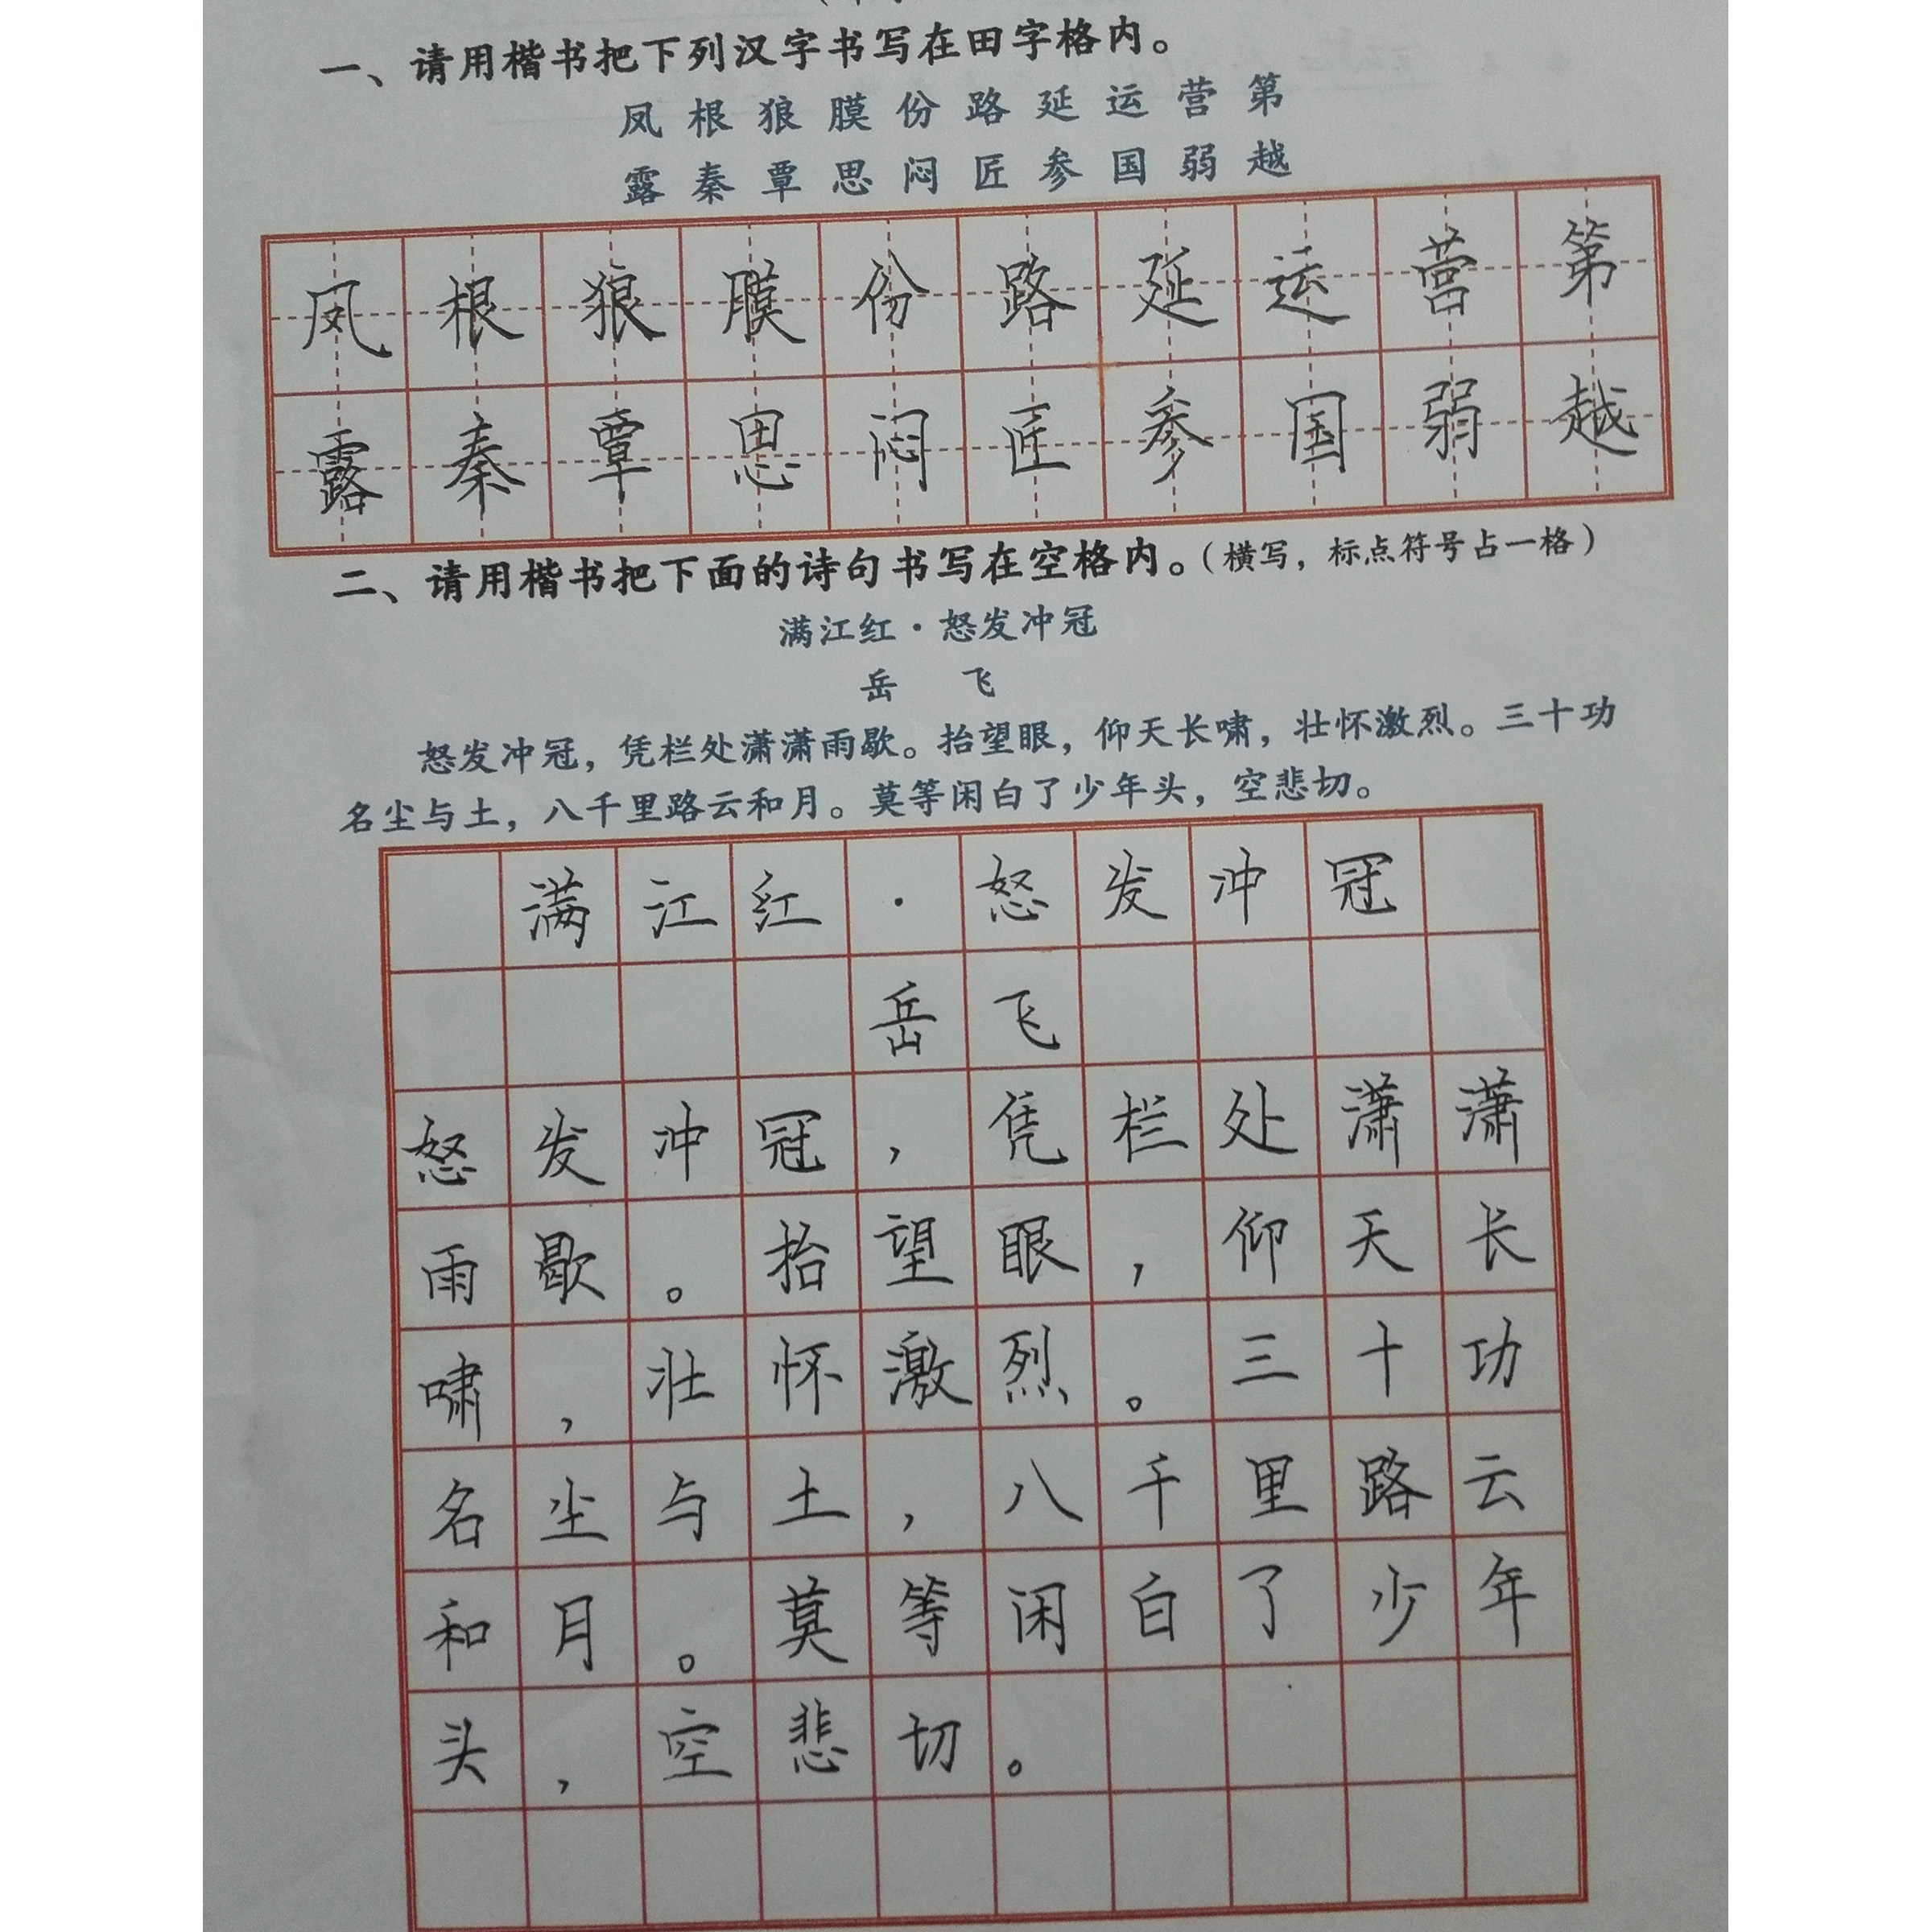 一、请用楷书把下列汉字书写在田字格内。
凤 根 狼 膜 份 路 延 运 营 第
露 秦 覃 思 闷 匠 参 国 弱 越
凤 根 狼 膜 份 路 延 运 营 第
露 秦 覃 思 闷 匠 参 国 弱 越
二、请用楷书把下面的诗句书写在空格内。(横写,标点符号占一格)
满江红·怒发冲冠
岳 飞
怒发冲冠,凭栏处潇潇雨歇。抬望眼,仰天长啸,壮怀激烈。三十功
名尘与土,八千里路云和月。莫等闲白了少年头,空悲切。
满江红·怒发冲冠
岳飞
怒发冲冠,凭栏处潇潇
雨歇。抬望眼,仰天长
啸,壮怀激烈。三十功
名尘与土,八千里路云
和月。莫等闲白了少年
头,空悲切。